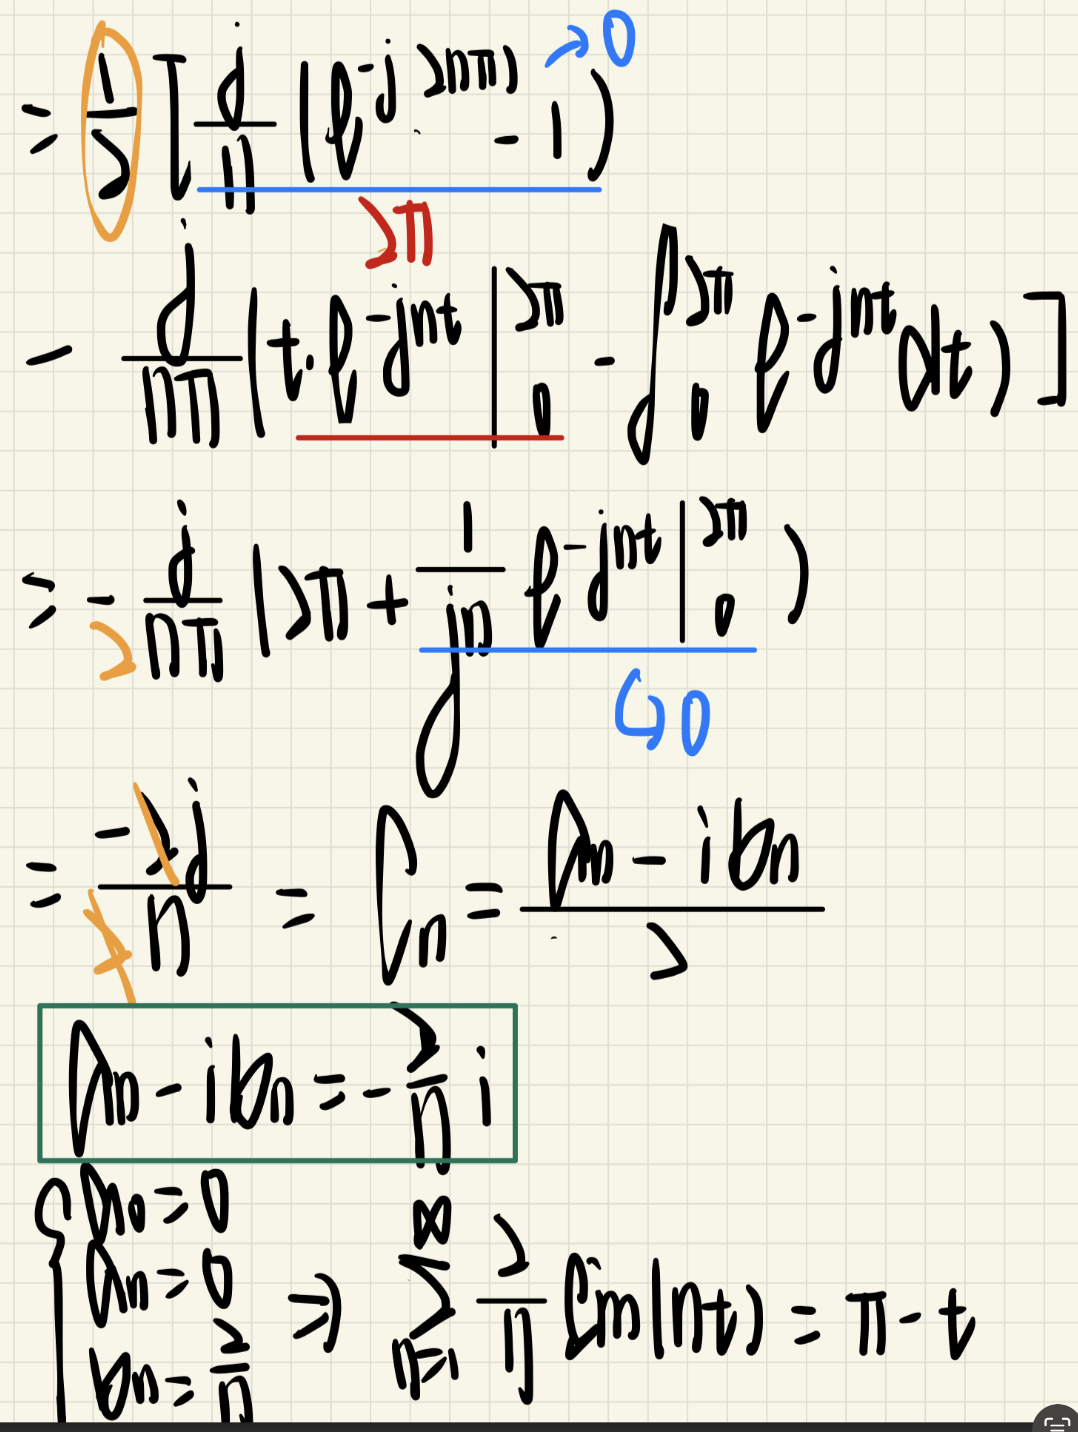 = 1/2 [ j/n (e^{-j2nπ} - 1) → 0
2π
- j/nπ (t·e^{-jnt} |_0^{2π} - ∫_0^{2π} e^{-jnt} dt) ]
= - j/2nπ (2π + 1/jn e^{-jnt} |_0^{2π})
↳ 0
= -2j/2n = Cn = (an - ibn)/2
an - ibn = - 2/n i
{ a0 = 0
an = 0
bn = 2/n ⇒ ∑_{n=1}^{∞} 2/n sin(nt) = π - t